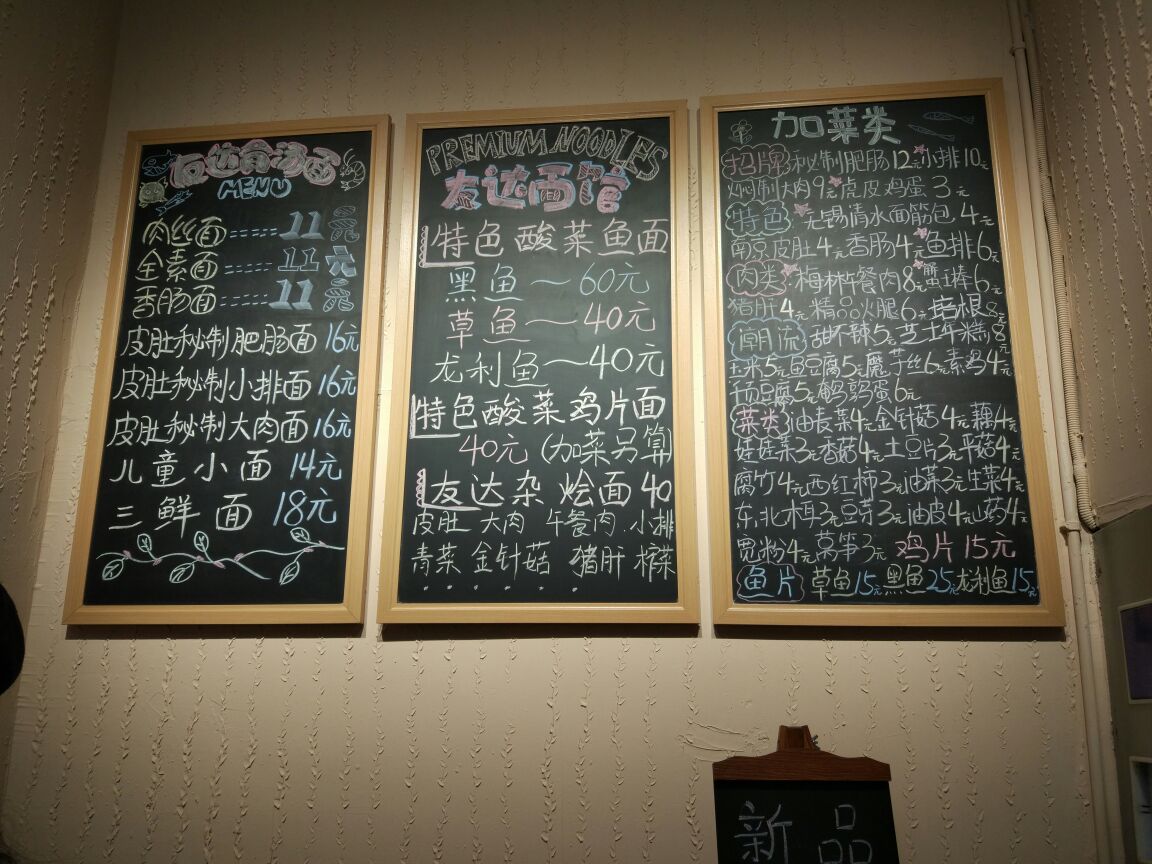 友达鱼汤面
MENU
肉丝面-----11元
全素面-----11元
香肠面-----11元
皮肚秘制肥肠面 16元
皮肚秘制小排面 16元
皮肚秘制大肉面 16元
儿童小面 14元
三鲜面 18元
PREMIUM NOODLES
友达面馆
特色酸菜鱼面
黑鱼~60元
草鱼~40元
龙利鱼~40元
特色酸菜鸡片面
40元 (加菜另算)
友达杂烩面 40
皮肚 大肉 午餐肉 小排
青菜 金针菇 猪肝 榨菜
......
加菜类
招牌 秘制肥肠12元 小排10元
焖制大肉9元 虎皮鸡蛋 3元
特色 无锡清水面筋包 4元
南京皮肚4元 香肠4元 鱼排6元
肉类 梅林午餐肉8元 蟹王棒6元
猪肝 4元 精品火腿 6元 培根8元
潮流 甜不辣5元 芝士年糕8元
玉米5元 鱼豆腐5元 魔芋丝6元 素鸡4元
千页豆腐5元 鹌鹑蛋6元
菜类 油麦菜4元 金针菇 4元 藕4元
娃娃菜3元 香菇4元 土豆片3元 平菇4元
腐竹4元 西红柿3元 油菜3元 生菜4元
东北木耳3元 豆芽3元 油皮4元 山药4元
宽粉4元 莴笋3元 鸡片15元
鱼片 草鱼15元 黑鱼25元 龙利鱼15元
新品